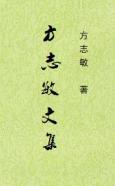 方志敏 著
方志敏文集